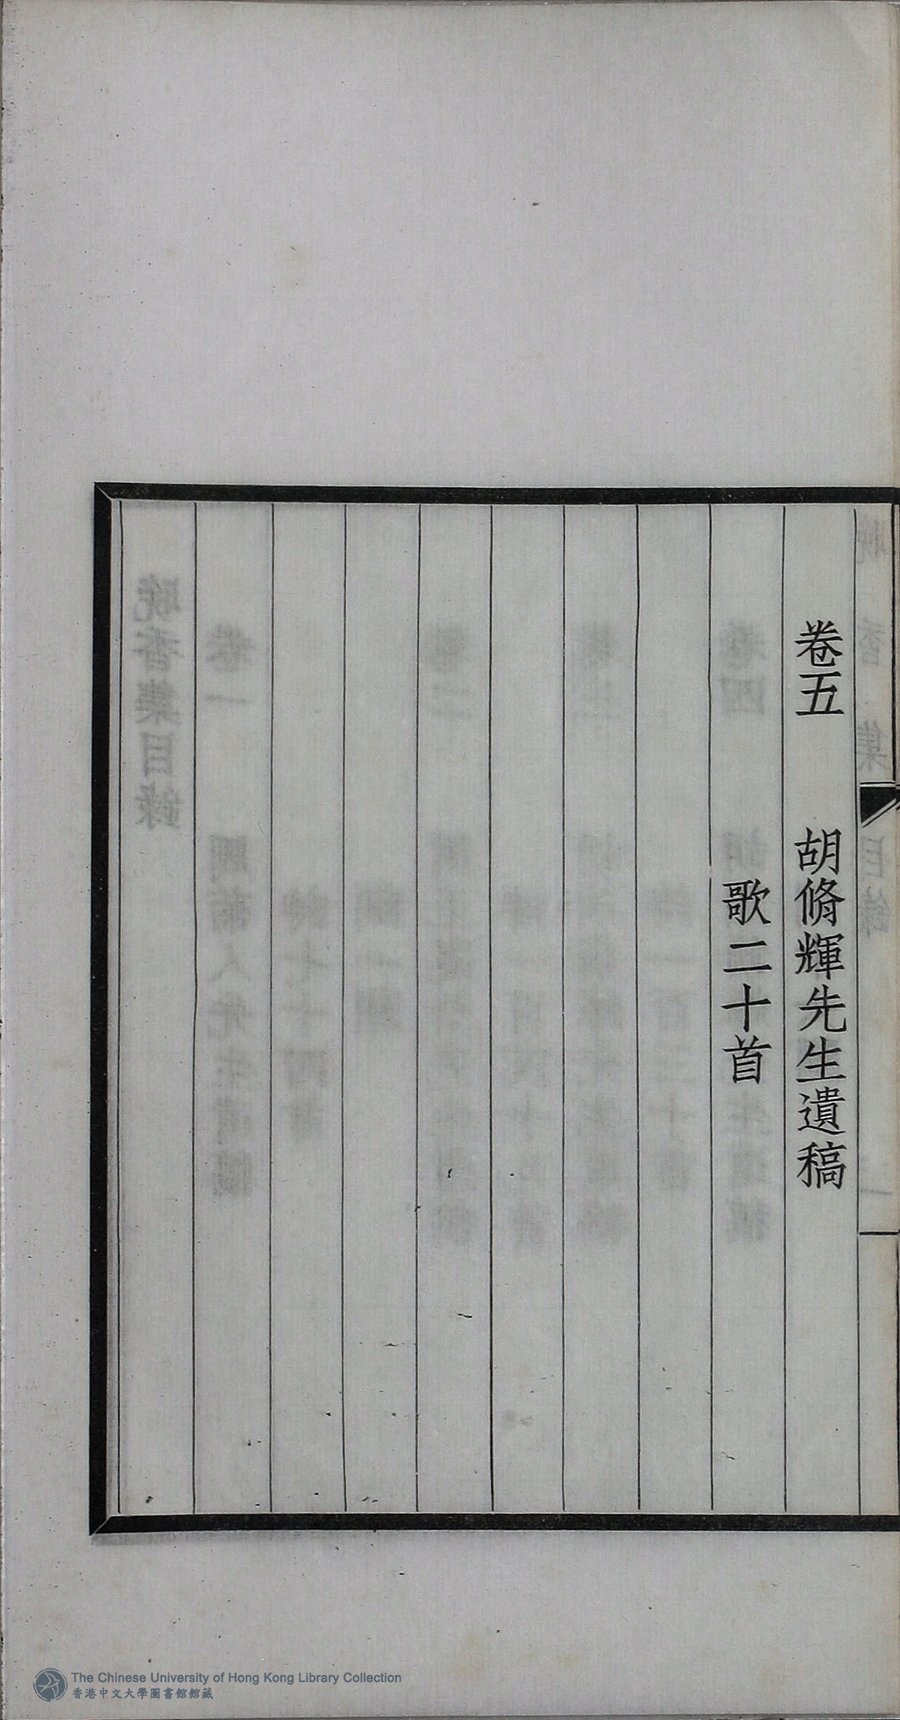 卷五　胡脩輝先生遺稿
歌二十首
The Chinese University of Hong Kong Library Collection
香港中文大學圖書館館藏